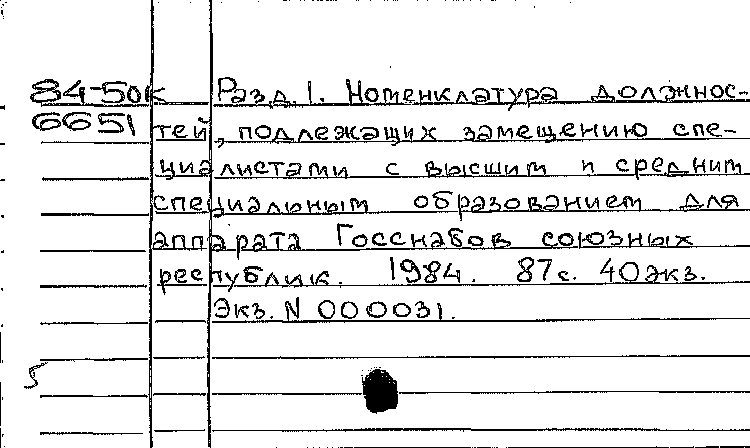 84-50к Разд. 1. Номенклатура должнос-
6651 тей, подлежащих замещению спе-
циалистами с высшим и средним
специальным образованием для
аппарата Госснабов союзных
республик. 1984. 87с. 40экз.
Экз. N 000031.
5